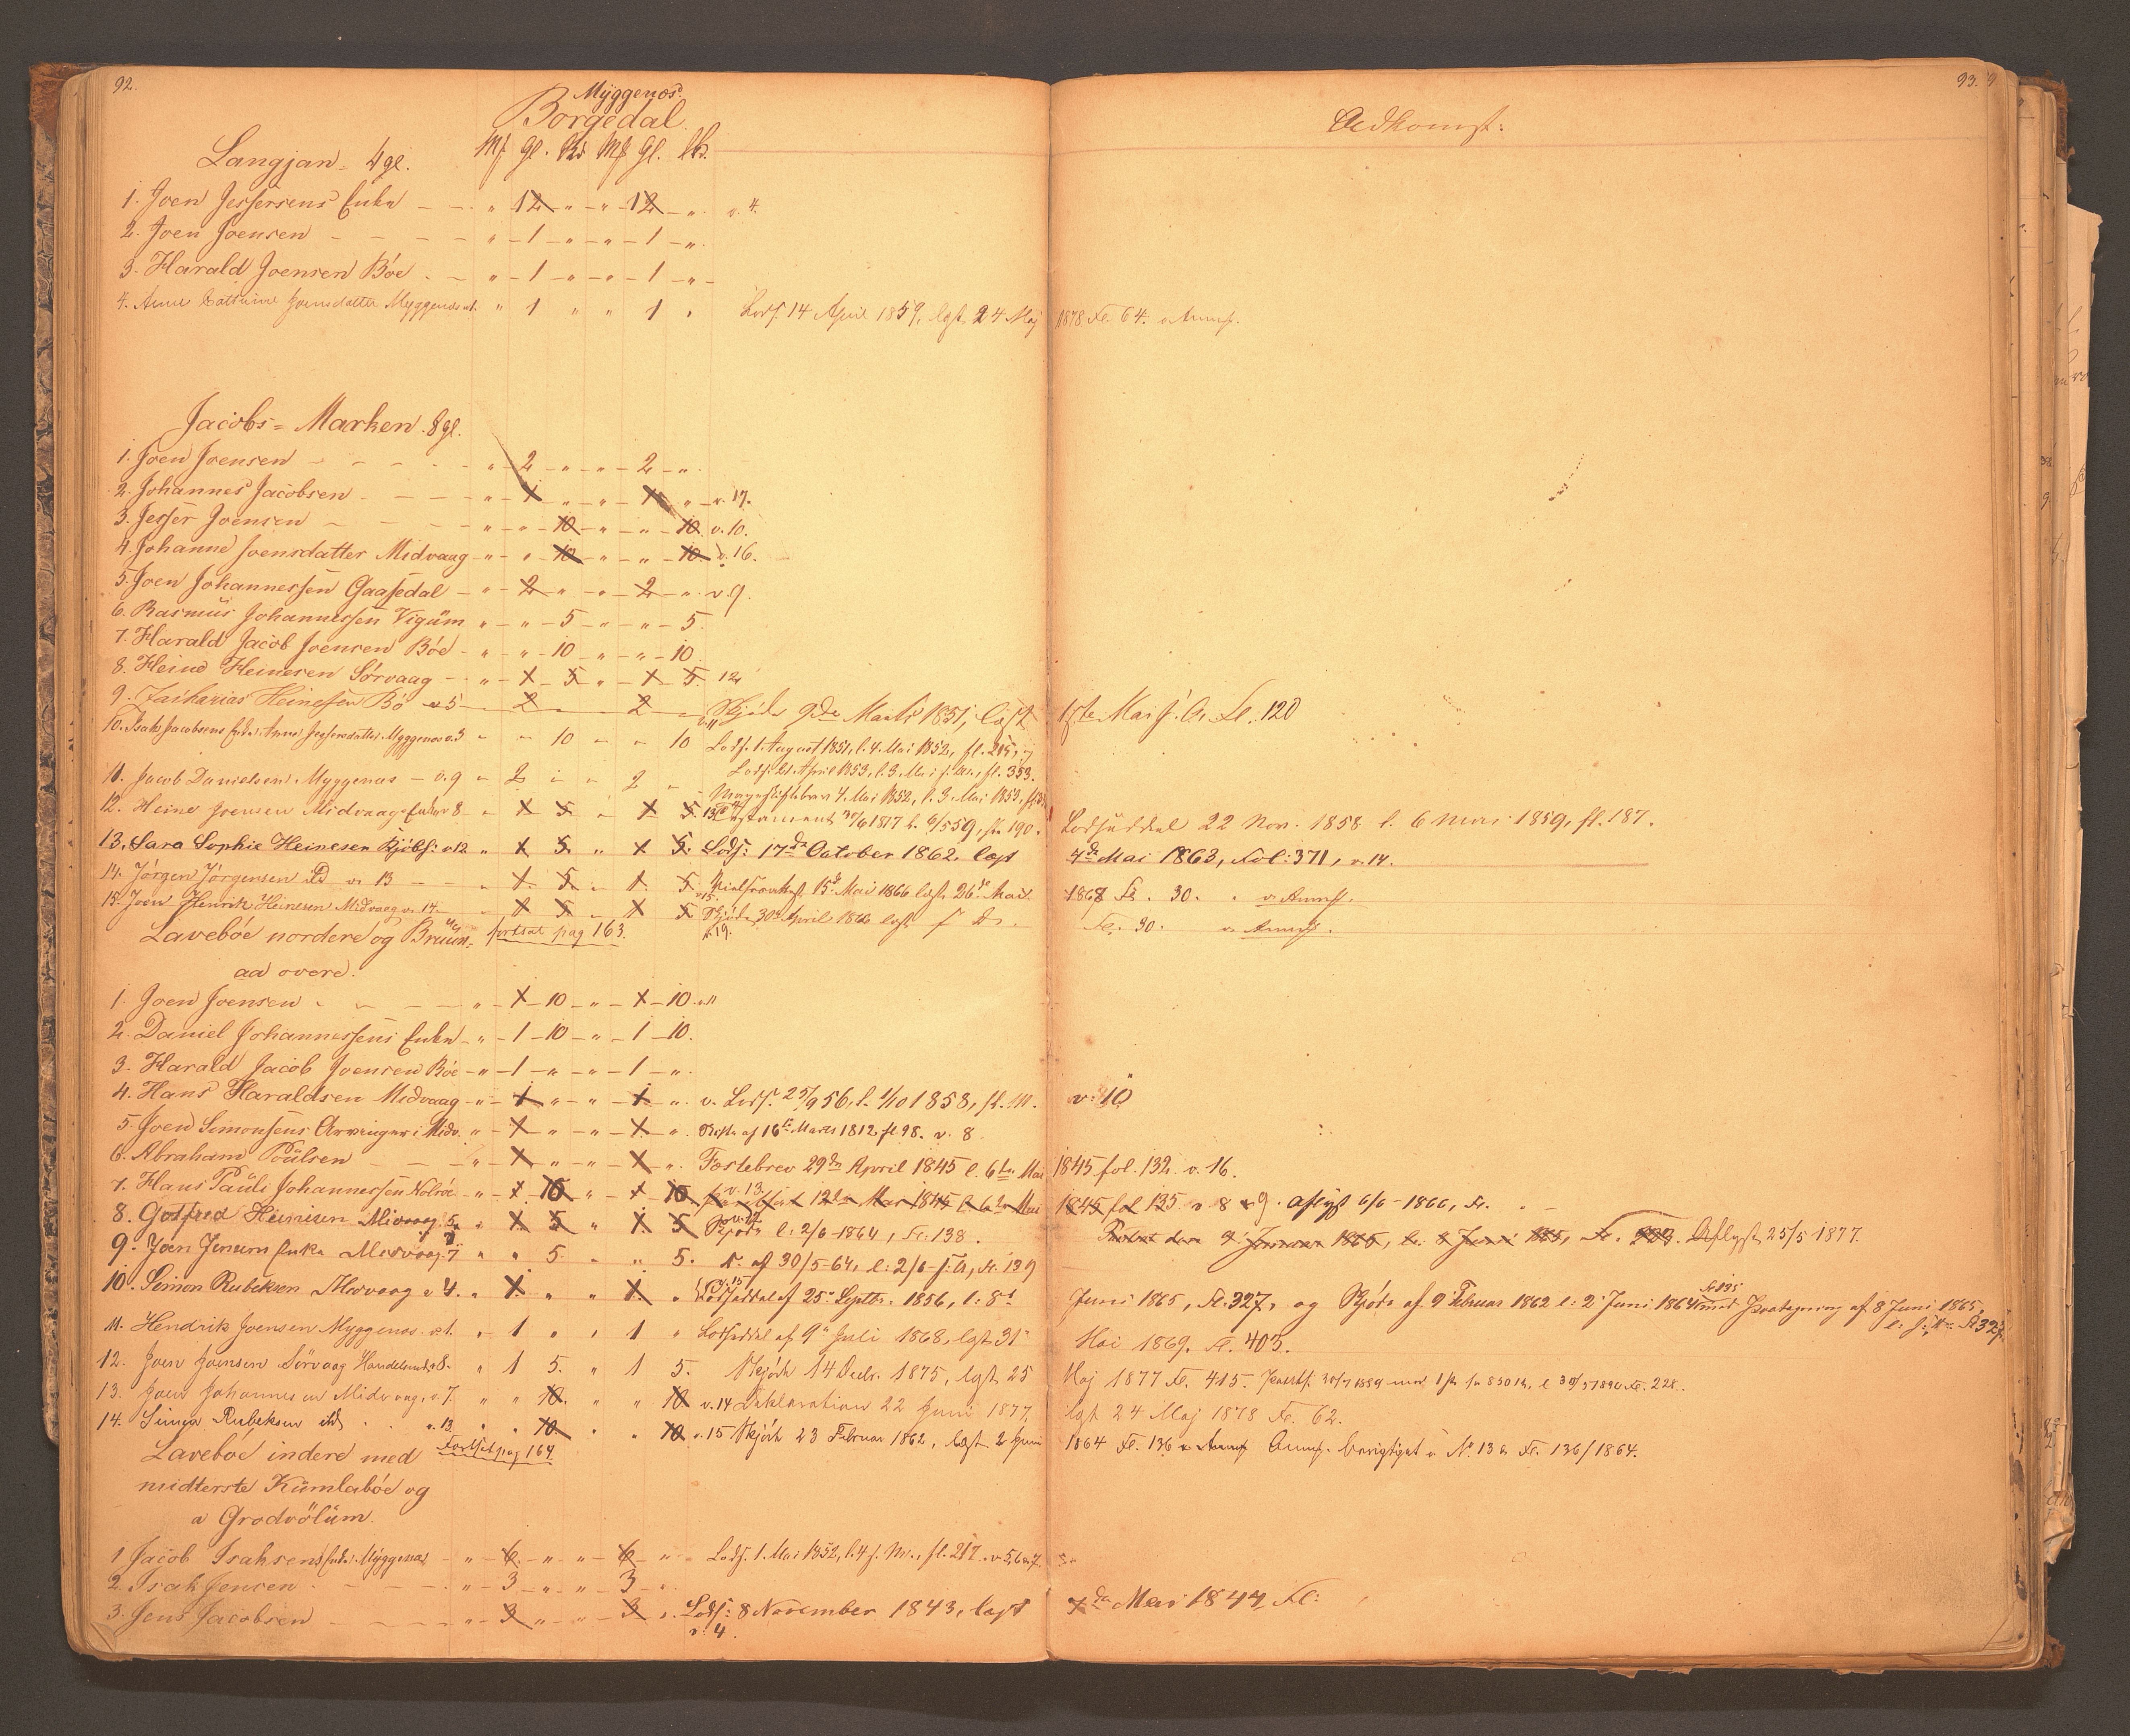 92.
93.
Myggenæs
Borgedal
Adkomst:
Langjan 4 gl.
Mk Gl. Mk Gl.
1. Joen Jessersens Enke " 12 " " 12 " v. 4.
2. Joen Joensen " 1 " " 1 "
3. Harald Joensen Böe " 1 " " 1 "
4. Anne Cathrine Joensdatter Myggenæs v1. " 1 " " 1 " Lods. 14 April 1859, lgst. 24 Maj 1878 Fl. 64. v Anmk.
Jacobs=Marken. 8 gl.
1. Joen Joensen " 2 " " 2 "
2. Johannes Jacobsen " 1 " " 1 " v. 17.
3. Jesser Joensen " " 10 " " 10 v. 10.
4. Johanne Joensdatter Midvaag " " 10 " " 10 v. 16.
5. Joen Johannessen Gaasedal " 2 " " 2 " v. 9.
6. Rasmus Johannessen Vigum " " 5 " " 5
7. Harald Jacob Joensen Böe " " 10 " " 10
8. Heine Heinesen Sörvaag " 1 5 " 1 5 12
9. Zacharias Heinesen Bö v 5 2 2 Skjöde 9de Marts 1851, læst 1ste Mai s. A. Fl. 120
10. Isak Jacobsens Enke Anne Jessersdatter Myggenæs v. 3 " " 10 " " 10 Lods. 1. August 1851, l. 4. Mai 1852, fl. 215,
Lods. 21. April 1853, l. 3. Mai s. A., fl. 353.
11. Jacob Danielsen Myggenæs v. 9 " 2 " " 2 " Mageskiftebrev 4. Mai 1852, l. 3. Mai 1853,
12. Heine Joensen Midvaag Enke v 8 " 1 5 " 1 5 13 Testament 30/6 1817 l. 6/5 59, fl. 190. Lodseddel 22 Nov. 1858 l. 6 Mai 1859, fl. 187.
13. Sara Sophie Heinesen Kjöbh: v 12 " 1 5 " 1 5 Lods: 17de October 1862, læst 4de Mai 1863, Fol: 371, v. 14.
14. Jörgen Jörgensen ibd v 13 " 1 5 " 1 5 15de Mai 1866 læst 26de Mai 1868 Fl. 30. v Anmk.
15. Joen Henrik Heinesen Midvaag v. 14 " 1 5 " 1 5 Skjöde 30te April 1866 læst s D. Fl. 30. v Anmk.
v. 19.
Lavebóe nordere og Bruun= fortsat pag 163.
aa overe.
1. Joen Joensen " 1 10 " 1 10 v. 11
2. Daniel Johannessens Enke " 1 10 " 1 10.
3. Harald Jacob Joensen Böe " 1 " " 1 "
4. Hans Haraldsen Midvaag " 1 " " 1 " v. Lods. 25/9 56, l. 1/10 1858, fl. 111. v. 10
5. Joen Simonsens Arvinger i Midv. " 1 " " 1 " af 16de Marts 1812 fl 98. v. 8
6. Abraham Poulsen " 1 " " 1 " Fæstebrev 29de April 1845 l. 6te Mai 1845 fol. 132 v. 16.
7. Hans Pauli Johannessen Nolsöe " 1 10 " 1 10 v. 13. 12te Mai 1845 l. 6te Mai 1845 fol 135 v 8 & 9. aflyst 6/6 - 1866, Fl.
8. Gotfred Heinisen Midvaag 5. " 1 5 " 1 5 Skjöde l: 2/6 1864, Fl: 138. 9 Januar 1865, l: 8 Juni 1865, Fl. Aflyst 25/5 1877.
9. Joen Jensens Enke Midvaag 7 " " 5 " " 5. af 30/5-64, l: 2/6 s: A, Fl. 139
10. Simon Rubeksen Midvaag v 4. " 1 " " 1 " v. 15 Lodseddel af 25de Septbr. 1856, l: 8de Juni 1865, Fl: 327, og Skjöde af 9 Februar 1862 l: 2 Juni 1864 med Paategning af 8 Juni 1865,
11. Hendrik Joensen Myggenæs v 1. " 1 " " 1 " Lodseddel af 9de Juli 1868, lgst. 31te Mai 1869, Fl. 403.
12. Joen Joensen Sörvaag v 8. " 1 5. " 1 5. Skjöde 14 Decbr. 1875, lgst 25 Maj 1877 Fl. 415.
13. Joen Johannesen Midvaag, v. 7. " " 10. " " 10 v. 14 Deklaration 22 Juni 1877, lgst 24 Maj 1878 Fl. 62.
14. Simon Rubeksen ibd v. 13 " 10 " " 10 v. 15 Skjöde 23 Februar 1862, læst 2 Juni 1864 Fl. 136 v Anmk Anmk. berigtiget v No. 13 Fl. 136/1864.
Laveboe indere med Fortsat pag 164.
midterste Kumlabóe og
a Grodvölum.
1 Jacob Isaksens Enke Myggenæs " 6 " " 6 " Lods. 1. Mai 1852, l. 4 s. M., fl. 217. v 5, 6 & 7.
2. Isak Jensen " 3 " " 3 "
3. Jens Jacobsen " 3 " " 3 " Lods: 8 November 1843, læst 7de Mai 1844, Fl:
v: 4.